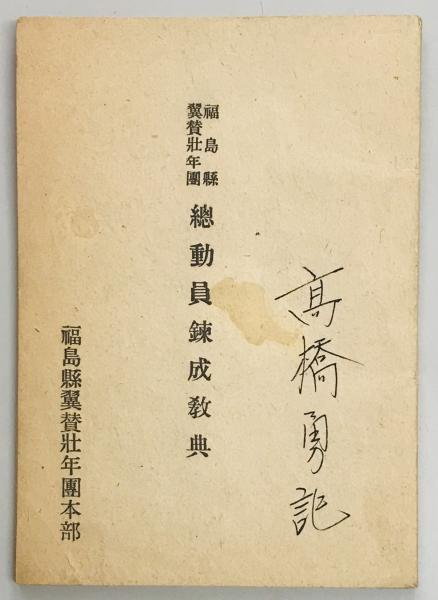 高橋勇記
福島縣
翼賛壯年團
總動員鍊成教典
福島縣翼賛壯年團本部